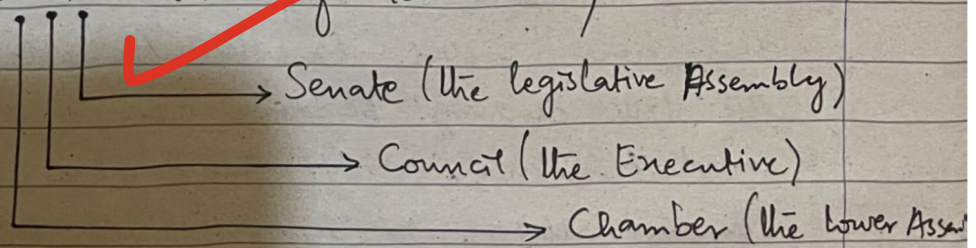 Senate (the legislative Assembly)
Council (the Executive)
Chamber (the Lower